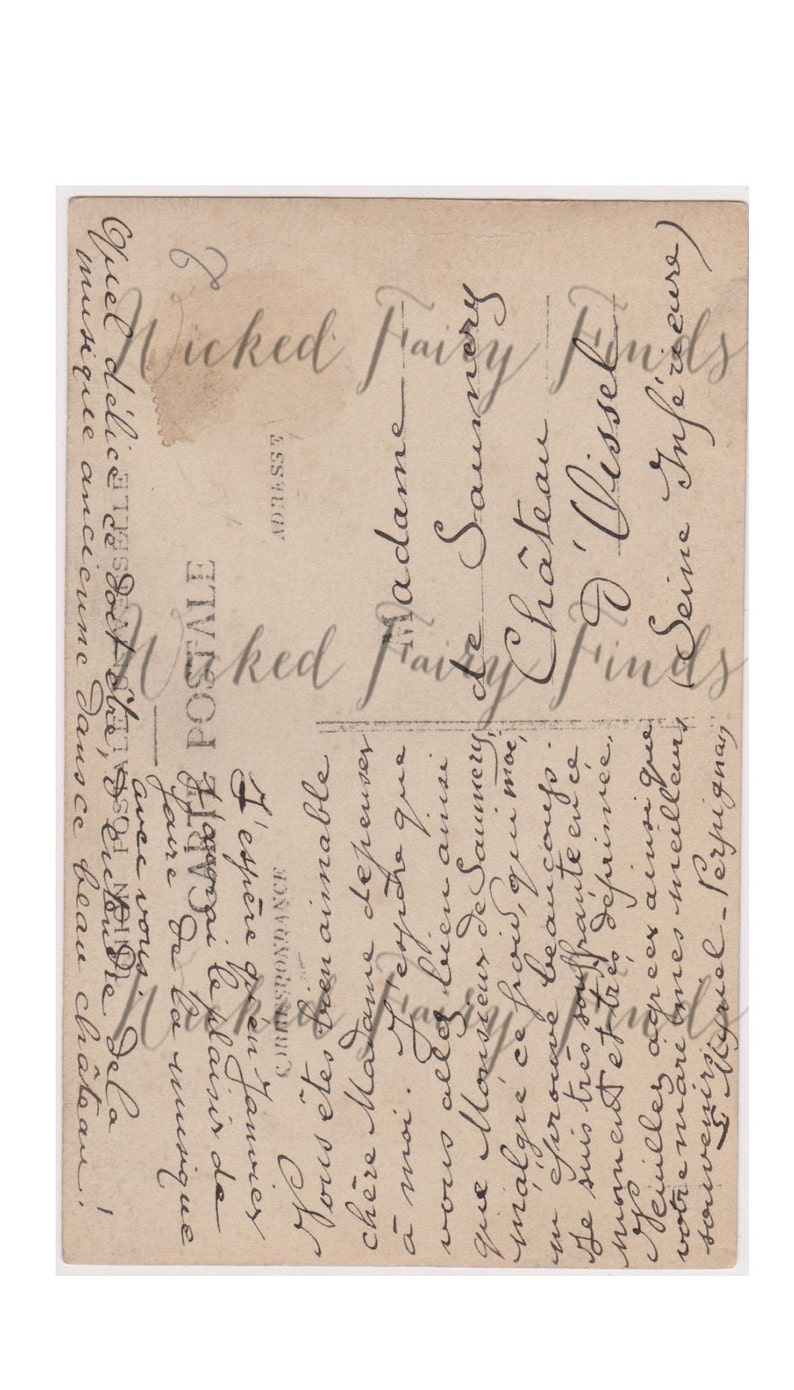 UNION POSTALE UNIVERSELLE
CARTE POSTALE
CORRESPONDANCE
ADRESSE
2
Vous êtes bien aimable
chère Madame de penser
à moi. J'espère que
vous allez bien ainsi
que Monsieur de Saumery,
malgré ce froid, qui moi,
m'éprouve beaucoup.
Je suis très souffrante en ce
moment et très déprimée.
Veuillez agréer ainsi que
votre mari mes meilleurs
souvenirs
Perpignan
J'espère qu'en Janvier
j'aurai le plaisir de
faire de la musique
avec vous.
Quel délice ce doit être, d'entendre de la
musique ancienne dans ce beau château!
Madame
de Saumery
Château
D'Oissel
(Seine Inférieure)
Wicked Fairy Finds
Wicked Fairy Finds
Wicked Fairy Finds